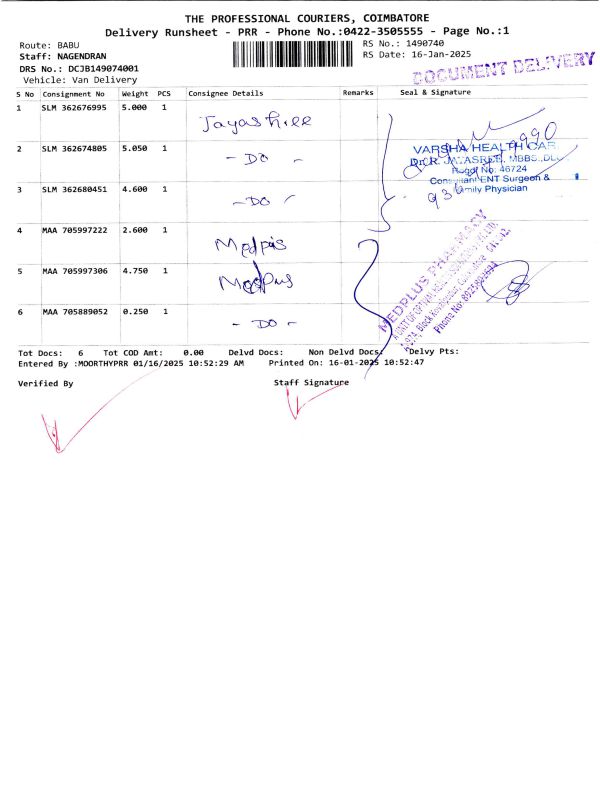 THE PROFESSIONAL COURIERS, COIMBATORE
Delivery Runsheet - PRR - Phone No.:0422-3505555 - Page No.:1
Route: BABU
RS No.: 1490740
Staff: NAGENDRAN
RS Date: 16-Jan-2025
DRS No.: DCJB149074001
Vehicle: Van Delivery
DOCUMENT DELIVERY
S No Consignment No Weight PCS Consignee Details Remarks Seal & Signature
1 SLM 362676995 5.000 1 Jayashree
2 SLM 362674805 5.050 1 - DO -
3 SLM 362680451 4.600 1 - DO -
VARSHA HEALTH CAR
Dr. R. JAYASREE, MBBS.,DLO
Regd No: 46724
Consultant ENT Surgeon &
Family Physician
4 MAA 705997222 2.600 1 Medplus
5 MAA 705997306 4.750 1 Medplus
6 MAA 705889052 0.250 1 - DO -
MEDPLUS PHARMACY
Tot Docs: 6 Tot COD Amt: 0.00 Delvd Docs: Non Delvd Docs: Delvy Pts:
Entered By :MOORTHYPRR 01/16/2025 10:52:29 AM Printed On: 16-01-2025 10:52:47
Verified By Staff Signature